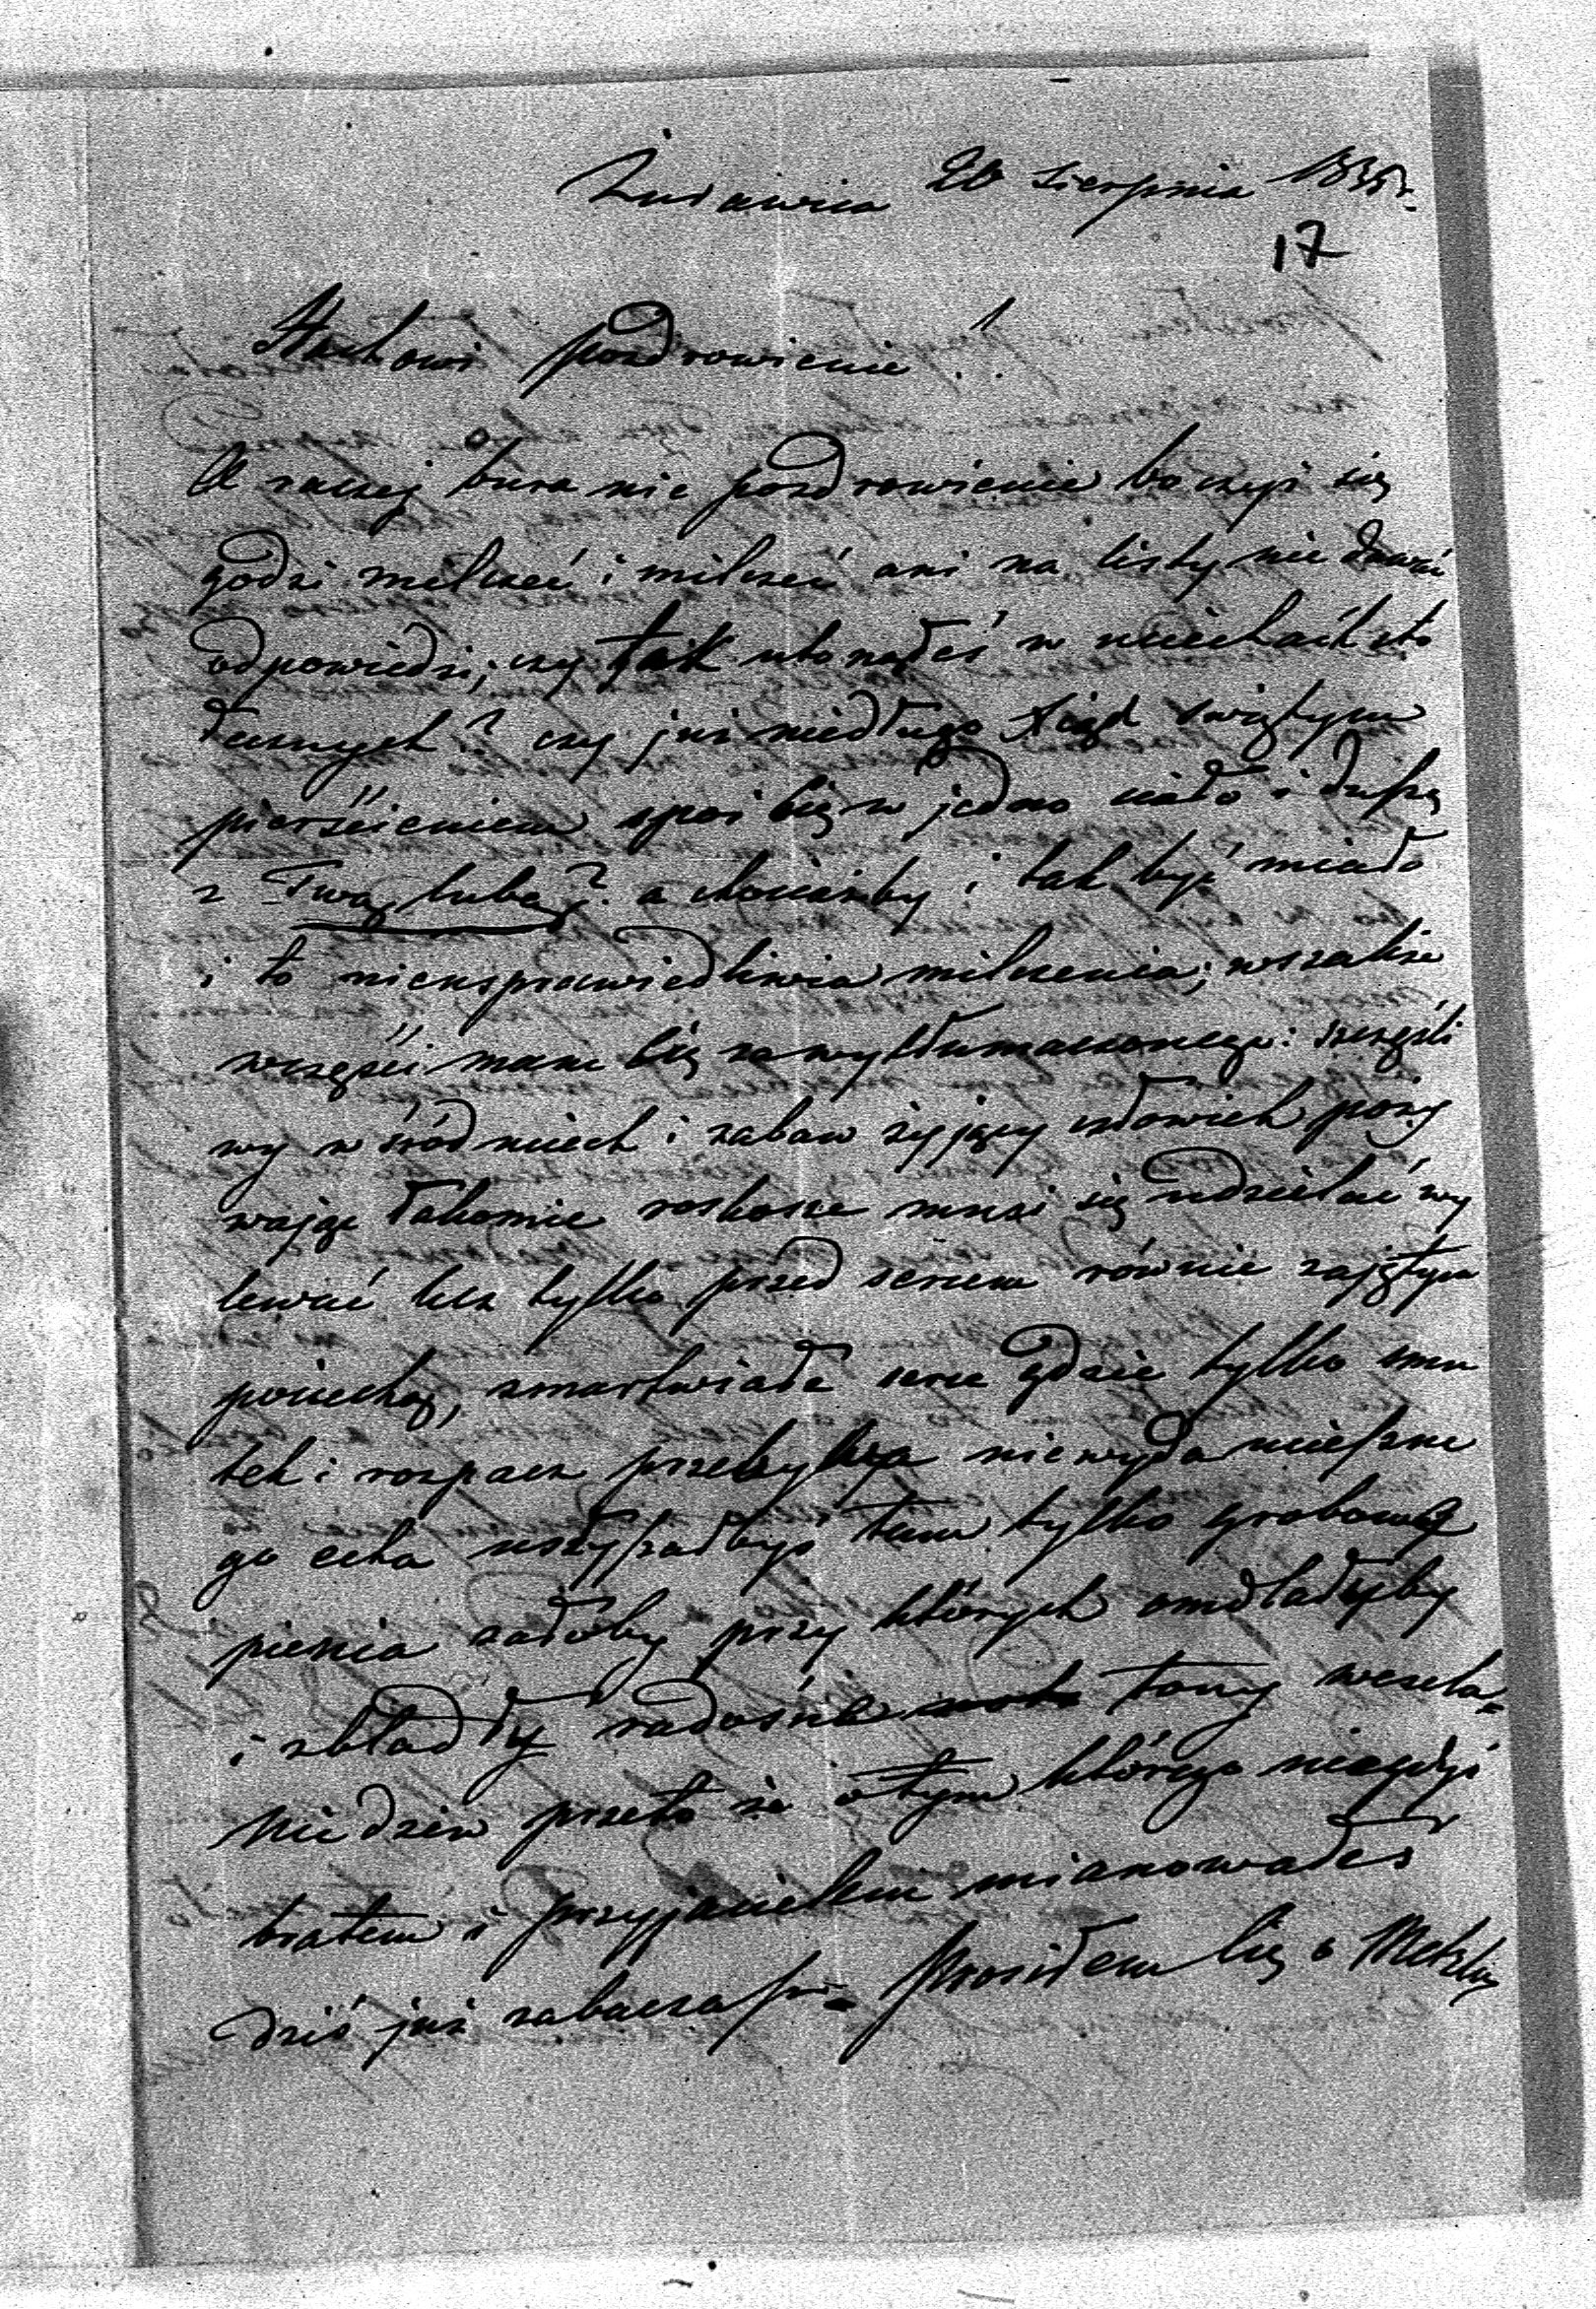 Żurawica 20 Sierpnia 1835 r.
17
Stachowi pozdrowienie!
A raczej bura nie pozdrowienie bo czyż się
godzi milczeć i milczeć ani na listy nie dawać
odpowiedzi; czy tak utonąłeś w uciechach sto
łecznych? czy już niedługo Xiądz świętym
pierścieniem spoi Cię w jedno ciało i duszę
z Twą lubą? a chociażby i tak być miało
i to nieusprawiedliwia milczenia; wszakże
wczęści mam Cię za wytłumaczonego: szczęśli
wy wśród uciech i zabaw żyjący człowiek poży
wając łakomie roskosze musi się udzielać wy
lewać lecz tylko przed sercem równie zajętym
pociechą, zmartwiałe serce gdzie tylko smu
tek i rozpacz przebywa niewyda ucieszne
go echa usłyszałbyś tam tylko grobowe
pienia żałoby przy których omdlałyby
i zbladły radośne tony wesela
nie dziw przeto że o tym którego niegdyś
bratem i przyjacielem mianowałeś
dziś już zabaczasz Prosiłem Cię o